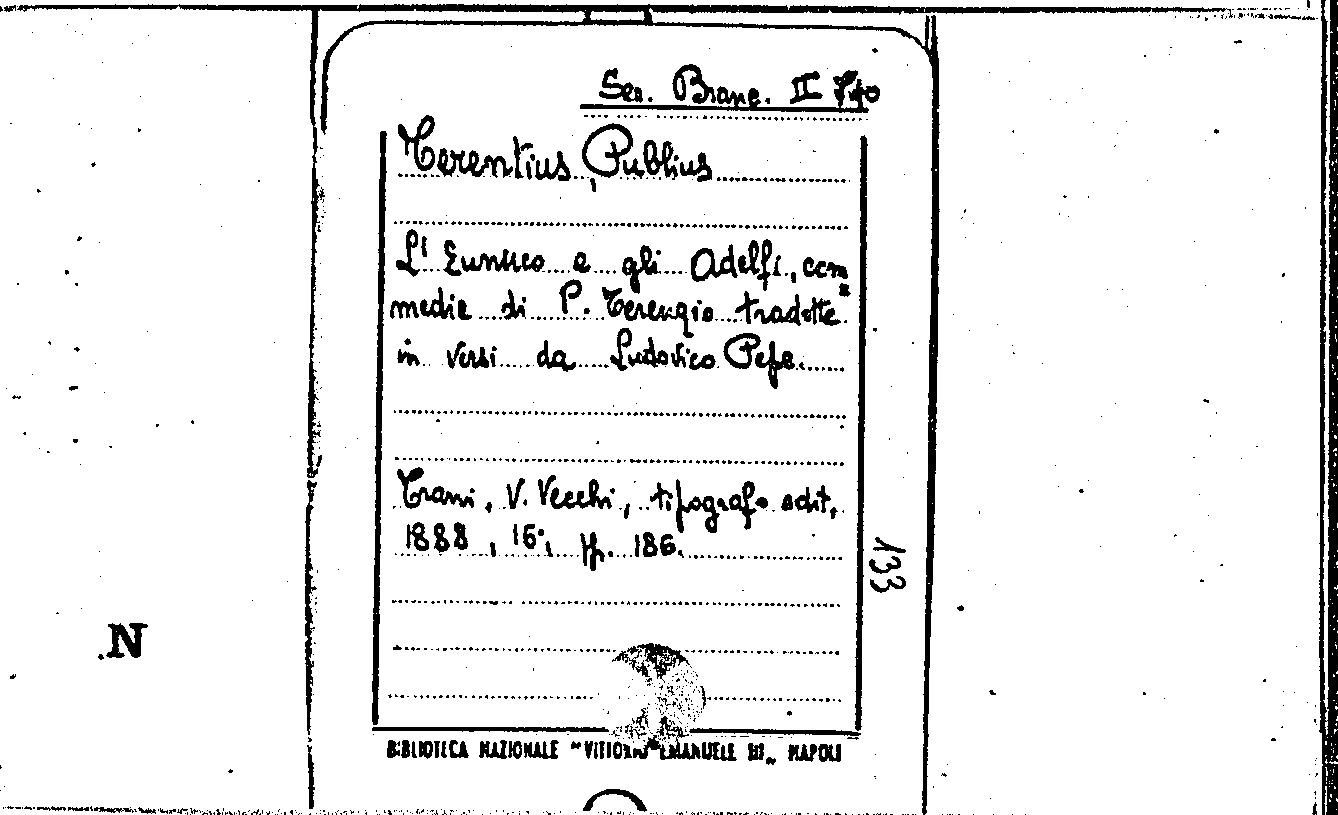 Sen. Branc. II 740
Terentius, Publius
L' Eunuco e gli Adelfi, com=
medie di P. Terenzio tradotte
in versi da Ludovico Pepe.
Trani, V. Vecchi, tipografo edit.
1888, 16°, pp. 186.
133
N
BIBLIOTECA NAZIONALE "VITTORIO EMANUELE III„ NAPOLI